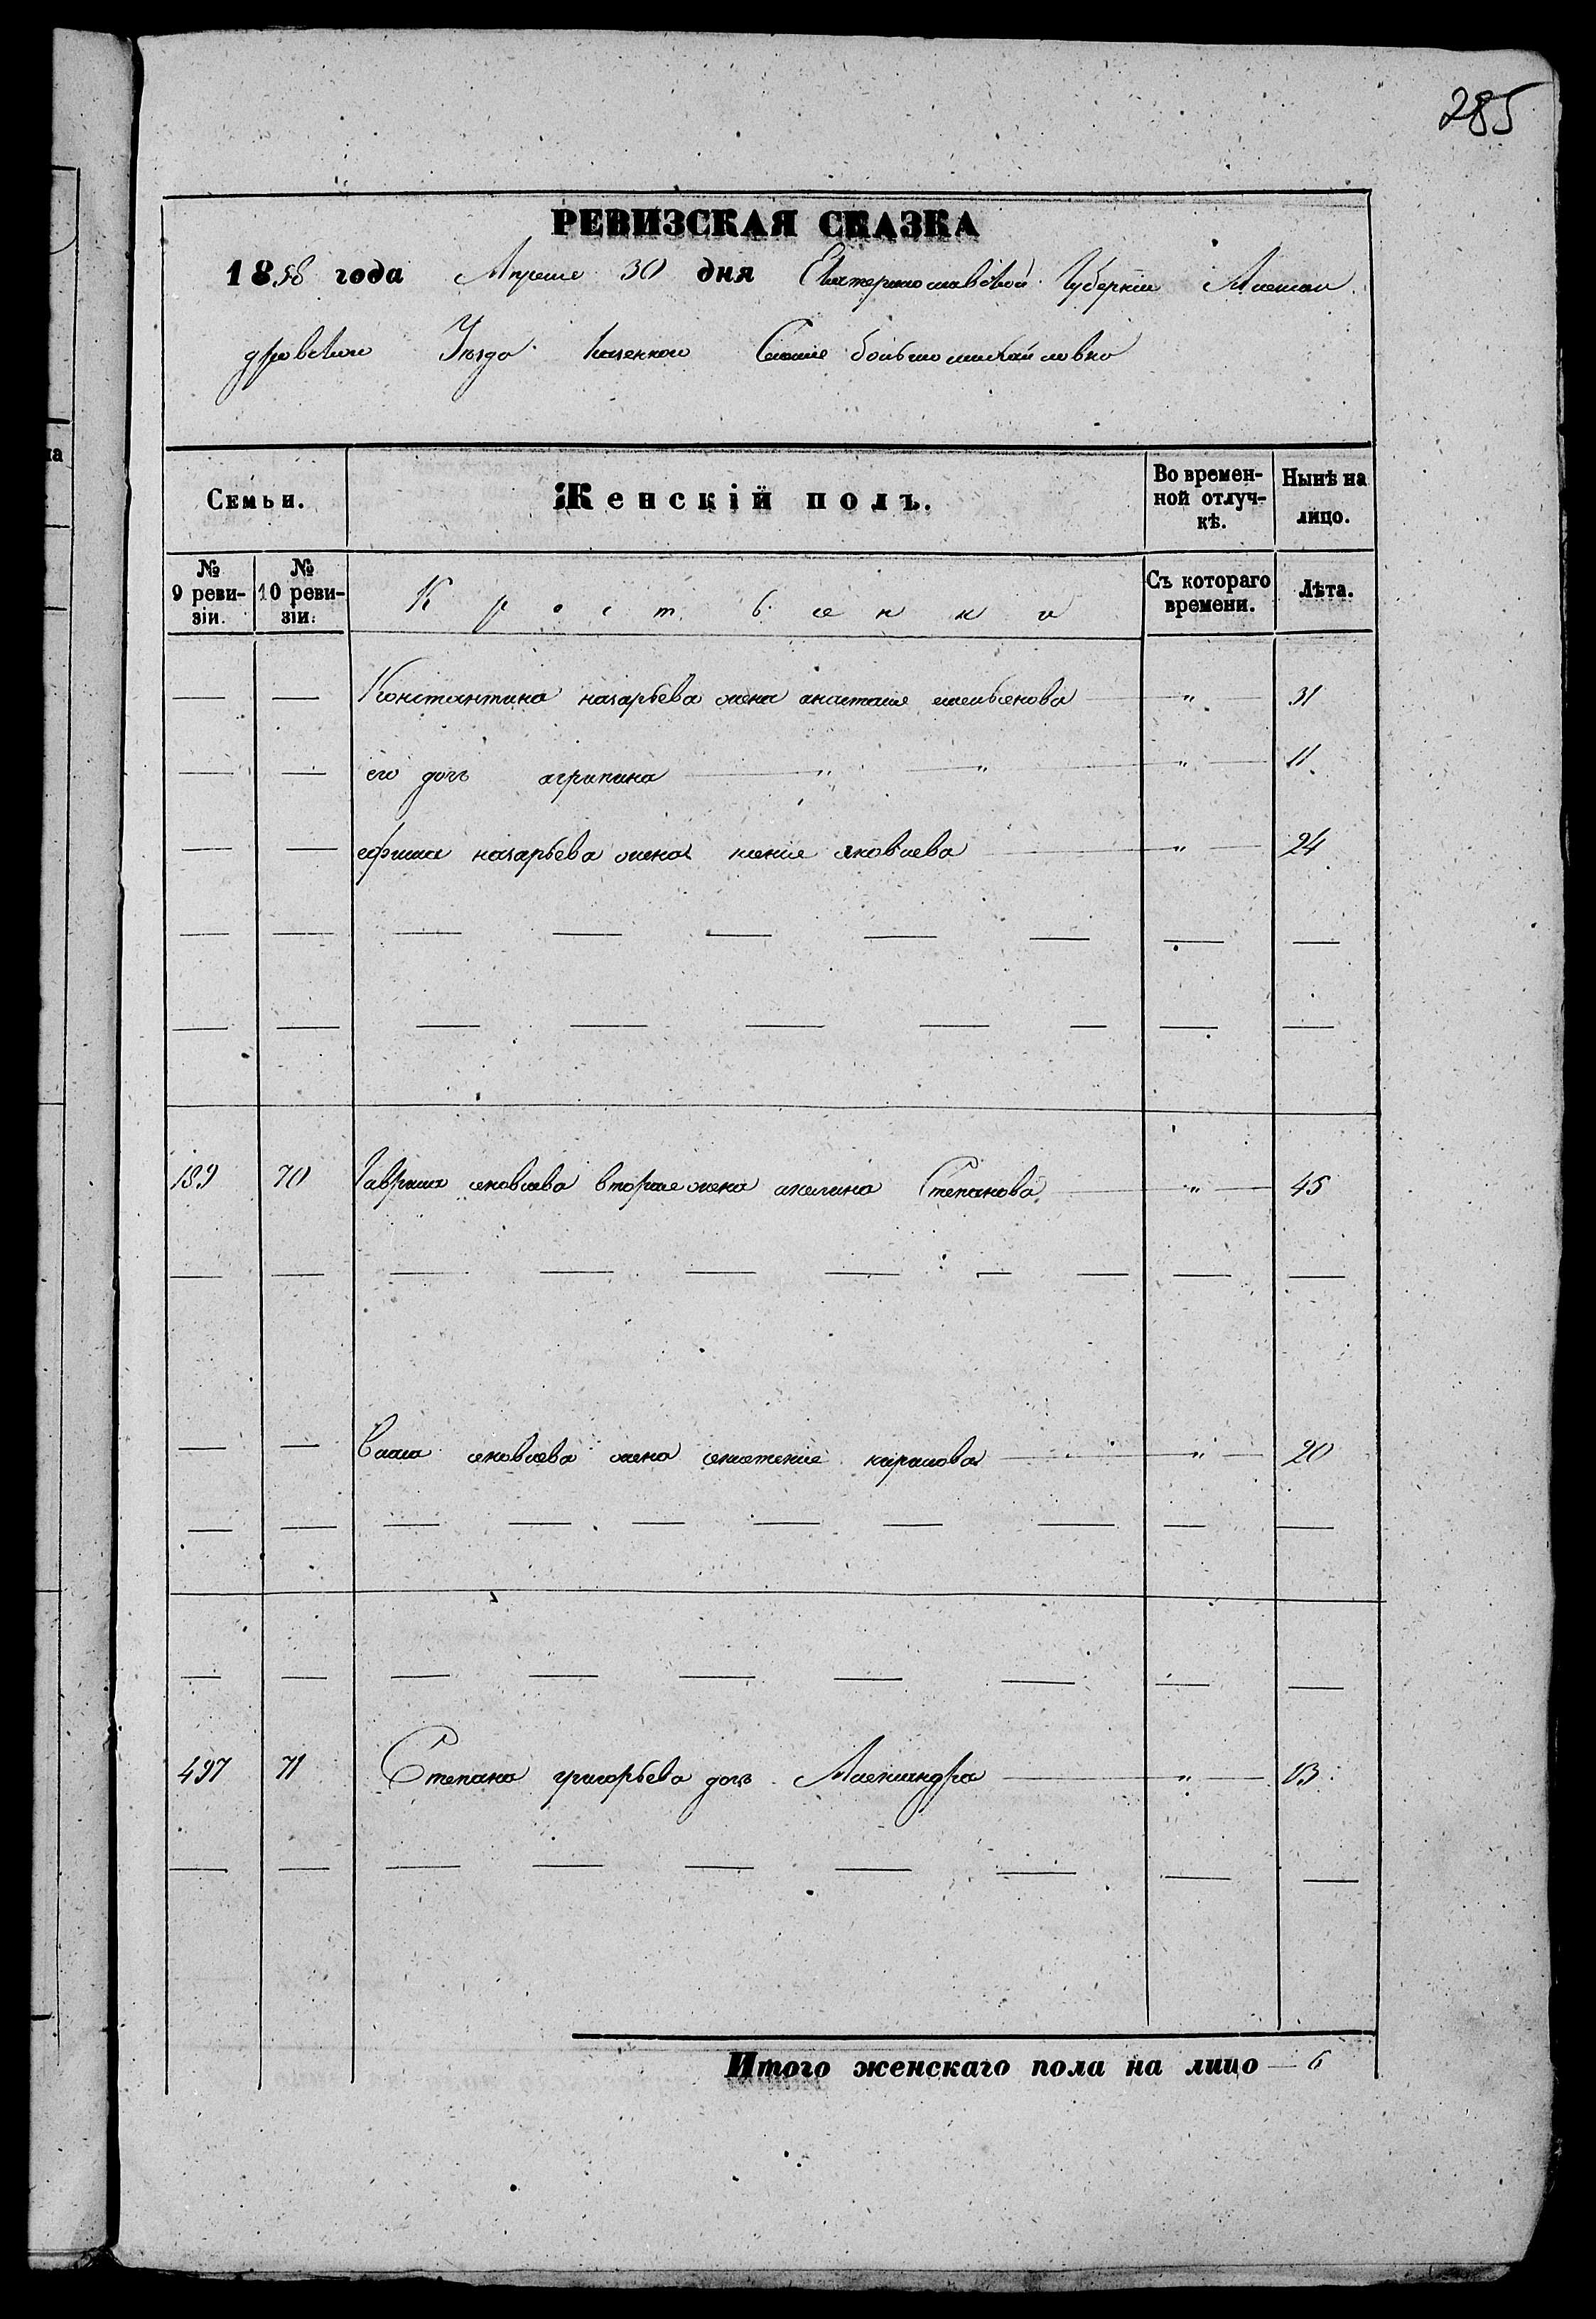 285
РЕВИЗСКАЯ СКАЗКА
1858 года Апреля 30 дня Екатеринославской Губернии Алексан
дровского Уезда Казенного Селения большомихайловка
Семьи. Женскій полъ. Во времен-ной отлуч-кѣ. Нынѣ на лицо.
№ 9 реви-зіи. № 10 реви-зіи. Крестьянки Съ котораго времени. Лѣта.
— — Константина назарьева жена анастасия емельянова — " — 31
— — его дочь агрипина — " — " — " — 11
— — ефима назарьева жена ксения яковлева — " — 24
189 70 Гаврила яковлева вторая жена акилина Степанова — " — 45
— — яковлева жена кирилова — " — 20
497 71 Степана григорьева дочь Александра — " — 13
Итого женскаго пола на лицо — 6